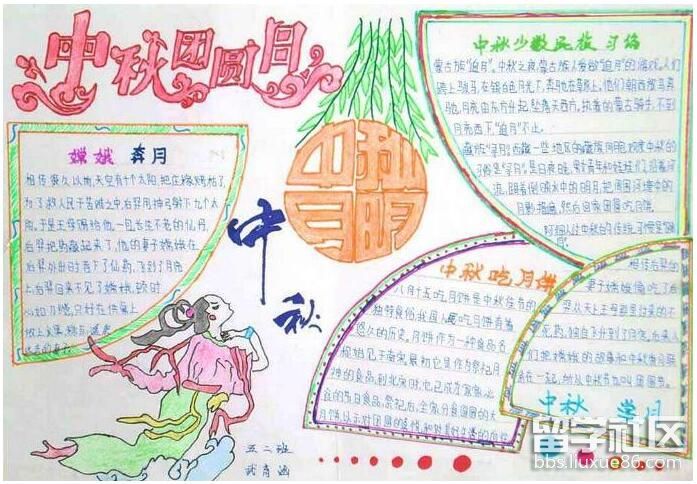 中秋团圆月
嫦娥 奔月
相传很久以前,天空有十个太阳,把庄稼烤枯了,
为了救人民于苦难之中,后羿用神弓射下九个太
阳,于是王母赐给他一包长生不老的仙丹,
后羿把药藏起来了,他的妻子嫦娥在
后羿外出时吞下了仙药,飞到了月亮
上,后羿回来不见了嫦娥,顿时
心如刀绞,只好在供桌上
中秋
中秋月明
中秋少数民族习俗
蒙古族"追月",中秋之夜,蒙古族人爱做"追月"的游戏,人们
跨上骏马,在银白色月光下,奔驰在草原上,他们朝西放马奔
驰,月亮由东方升起,坠落天西方,执着的蒙古骑手,不到
月亮西下,"追月"不止。
藏族"寻月",西藏一些地区的藏族同胞欢度中秋的
习俗是"寻月",是日夜晚,男女青年和娃娃们,沿着河
流,跟着倒映水中的明月,把周围河塘中的
月影 遍,然后回家团圆吃月饼。
中秋吃月饼
八月十五吃月饼是中秋佳节的
独特食俗,我国人民吃月饼有着
悠久的历史。月饼作为一种食品名
称始见于南宋,最初它是作为祭祀月
神的食品。到北宋时,它已成为
节日食品。祭祀后,全家分食圆圆的大
相传后羿的
妻子嫦娥偷吃了后
羿从天上王母那里讨来的不
死药,独自飞升到了月宫。后来人
们把嫦娥的故事和中秋节月联
系在一起,所以中秋节也叫团圆节。
中秋 赏月
五二班
留学社区
bbs.liuxue86.com